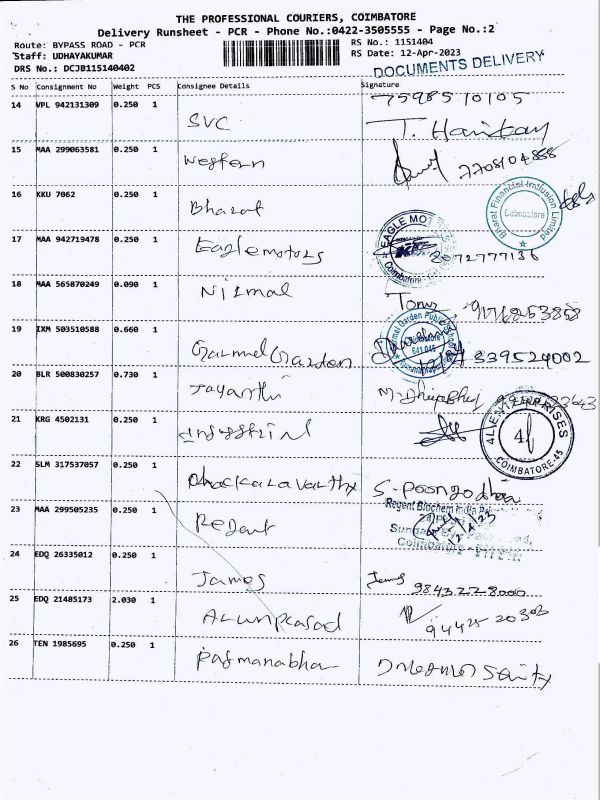 THE PROFESSIONAL COURIERS, COIMBATORE
Delivery Runsheet - PCR - Phone No.:0422-3505555 - Page No.:2
Route: BYPASS ROAD - PCR
RS No.: 1151404
Staff: UDHAYAKUMAR
RS Date: 12-Apr-2023
DRS No.: DCJB115140402
DOCUMENTS DELIVERY
S No Consignment No Weight PCS Consignee Details Signature
14 VPL 942131309 0.250 1 SVC 7598510105
15 MAA 299063581 0.250 1 Western 7708104888
16 KKU 7062 0.250 1 Bharat
Bharat Financial Inclusion Limited
Coimbatore
17 MAA 942719478 0.250 1 Eaglemotors
EAGLE MOTORS
Coimbatore
18 MAA 565870249 0.090 1 Nirmal
19 IXM 503510588 0.660 1 Carmel Garden
Carmel Garden Public School
20 BLR 500830257 0.730 1 Jayanthi
21 KRG 4502131 0.250 1 industrial
4LIENT ENTERPRISES
COIMBATORE-45
22 SLM 317537057 0.250 1 S-Poongodhai
23 MAA 299505235 0.250 1 Regent
Regent Biochem India
Coimbatore
24 EDQ 26335012 0.250 1 James 9843228000
25 EDQ 21485173 2.030 1 Arunprasad
26 TEN 1985695 0.250 1 Padmanabhan